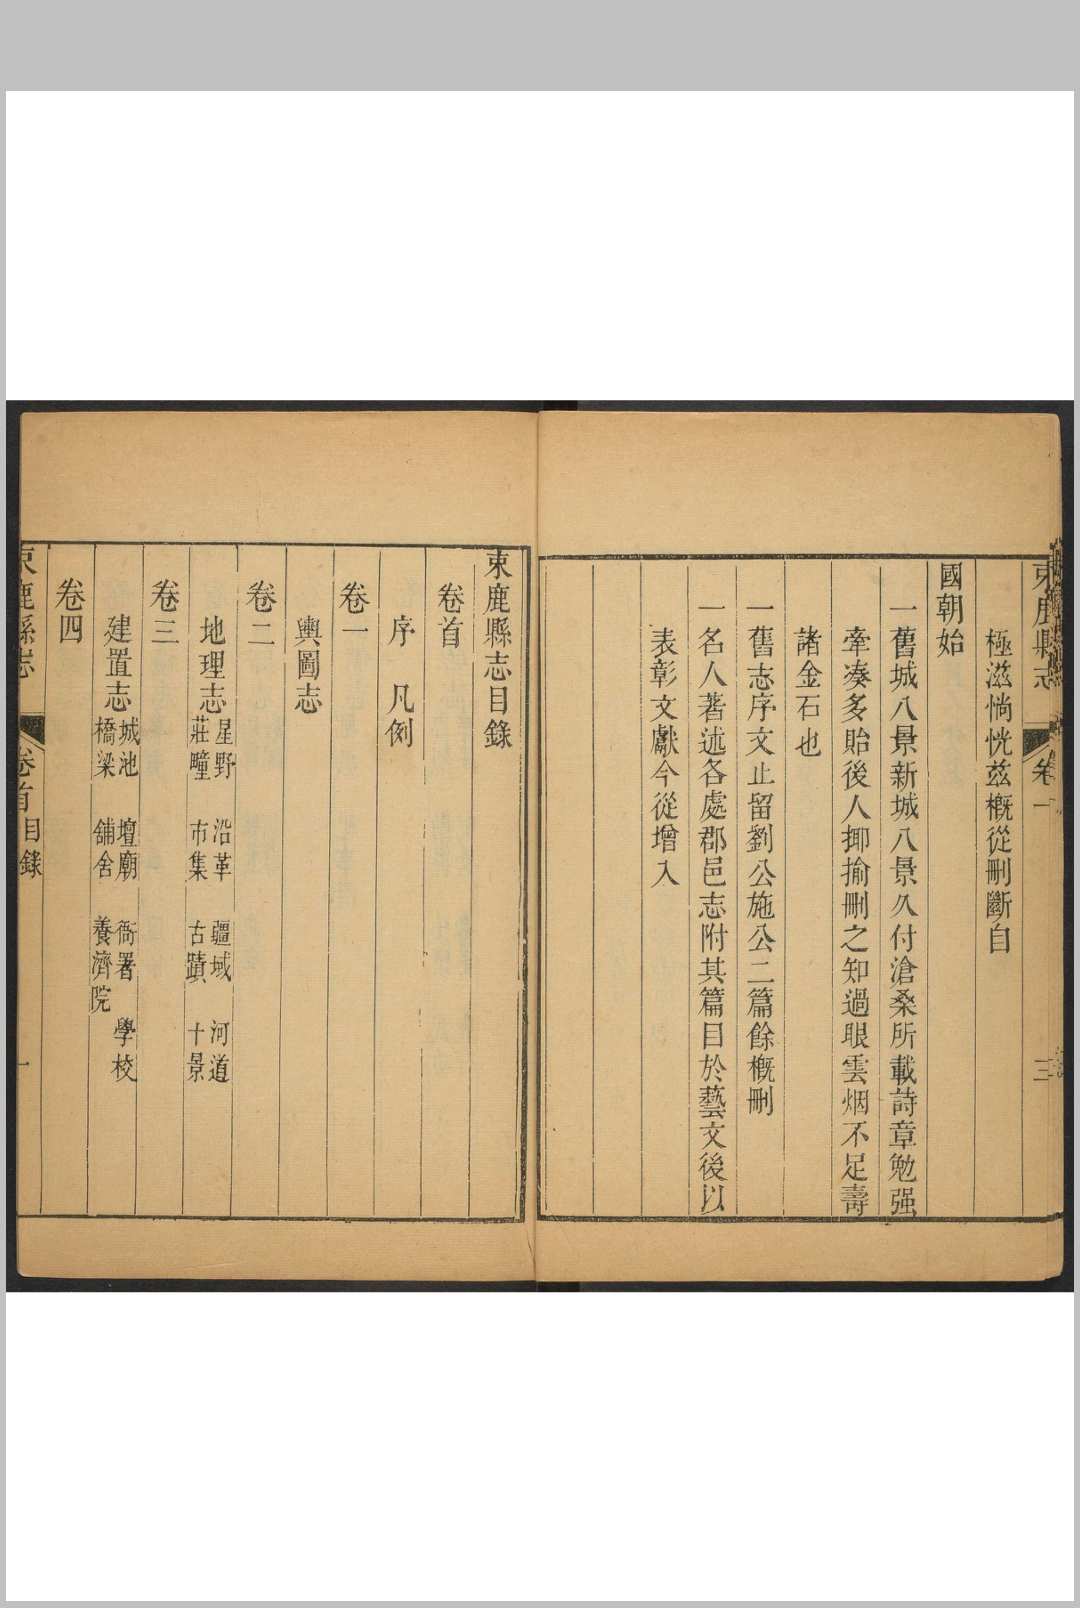 束鹿縣志
卷一
三
極滋惝恍茲概從刪斷自
國朝始
一舊城八景新城八景久付滄桑所載詩章勉强
牽凑多貽後人揶揄刪之知過眼雲烟不足壽
諸金石也
一舊志序文止留劉公施公二篇餘概刪
一名人著述各處郡邑志附其篇目於藝文後以
表彰文獻今從增入
束鹿縣志目錄
卷首
序 凡例
卷一
輿圖志
卷二
地理志 星野 沿革 疆域 河道
莊疃 市集 古蹟 十景
卷三
建置志 城池 壇廟 衙署 學校
橋梁 舖舍 養濟院
卷四
束鹿縣志
卷首目錄
一